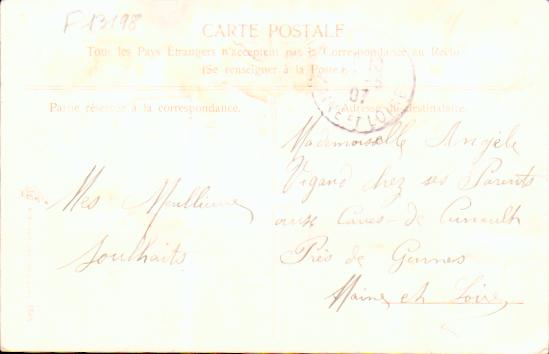 F 13198
CARTE POSTALE
Tous les Pays Étrangers n'acceptent pas la Correspondance au Recto
(Se renseigner à la Poste)
Partie réservée à la correspondance.
Adresse du destinataire.
07
MAINE ET LOIRE
Mes Meullieures
Souhaits
Mademoiselle Angèle
Vigand chez ses Parents
aux Caves-de Cunault
Près de Gennes
Maine et Loire